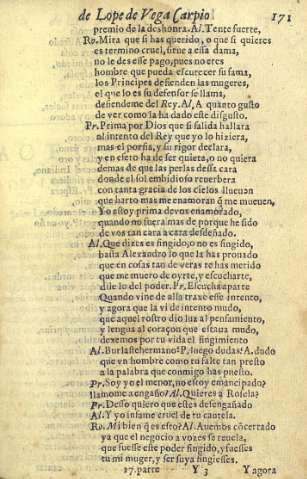 de Lope de Vega Carpio 171
premio de la deshonra. Al. Tente fuerte,
Ro. Mira que si has querido, o que si quieres
es termino cruel, sirue a essa dama,
no le des esse pago, pues no eres
hombre que pueda escurecer su fama,
los Principes defienden las mugeres,
el que lo es su defensor se llama,
defiendeme del Rey. Al. A quãto gusto
de ver como la ha dado este disgusto.
Pr. Prima por Dios que si salida hallara
al intento del Rey que yo lo hiziera,
mas el porfia, y su rigor declara,
y en efeto ha de ser quiera, o no quiera
demas de que las perlas dessa cara
donde el sol embidioso reuerbera
con tanta gracia de los cielos llueuen
que harto mas me enamoran q̃ me mueuen,
Yo estoy prima de vos enamorado,
quando no fuera mas de porque he sido
de vos tan cara a cara desdeñado.
Al. Que dizes es fingido, o no es fingido,
basta Alexandro lo que la has pronado
que en cosas tan de veras te has metido
que me muero de oyrte, y escucharte,
dile lo del poder. Pr. Escucha aparte
Quando vine de alla traxe esse intento,
y agora que la vi de intento mudo,
que aquel rostro dio luz al pensamiento,
y lengua al coraçon que estaua mudo,
dexemos por tu vida el fingimiento
Al. Burlaste hermano? P. luego dudas? A. dudo
que en hombre como tu falte tan presto
a la palabra que conmigo has puesto.
Pr. Soy yo el menor, no estoy emancipado?
llamome a engaño? Al. Quieres a Rosela?
Pr. Desso quiero que estes desengañado
Al. Y yo infame cruel de tu cautela.
Ro. Mi bien q̃ es esto? Al. Auemos cõcertado
ya que el negocio a vozes se reuela,
que fuesse este poder fingido, y fuesses
tu mi muger, y ser suya fingiesses.
17. parte Y 3 Y agora